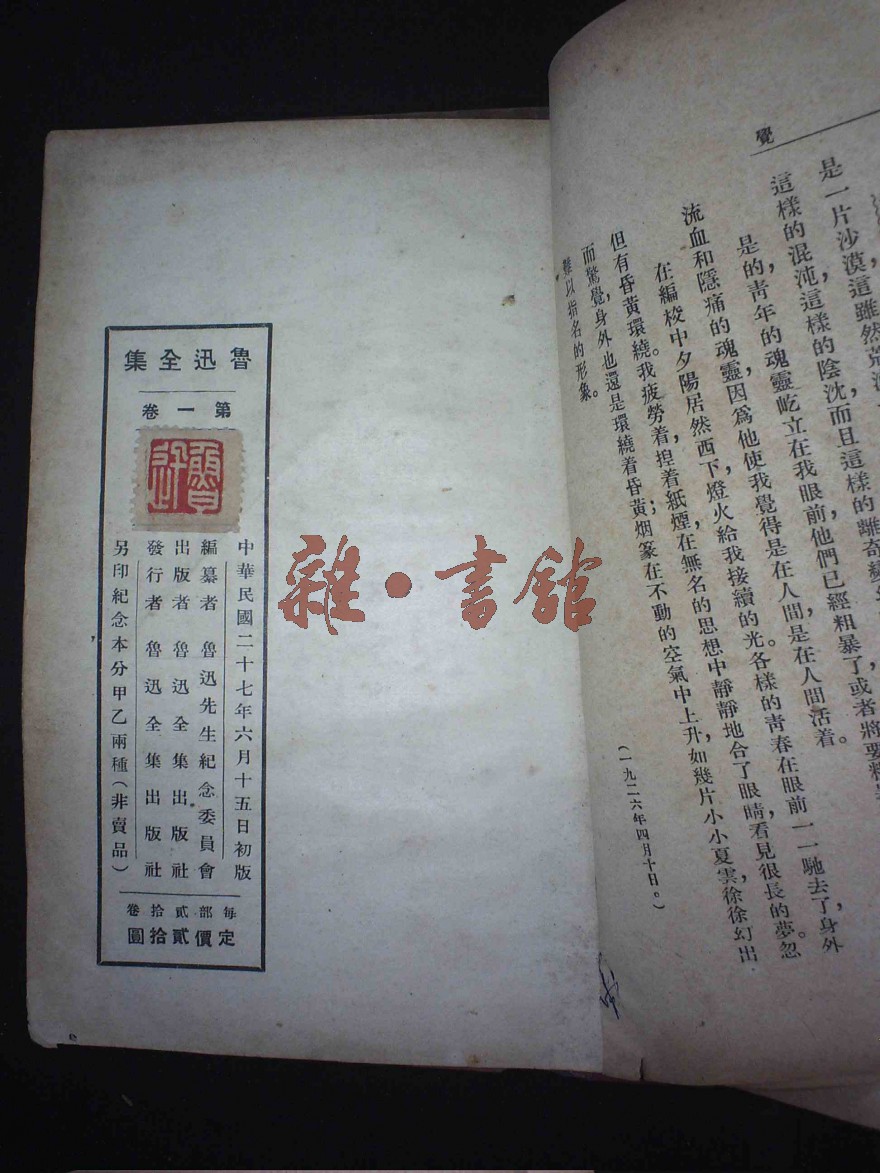 覺
是一片沙漠這雖然荒漠
這樣的混沌,這樣的陰沈而且這樣的離奇變幻
是的青年的魂靈屹立在我眼前他們已經粗暴了或者將要粗暴
流血和隱痛的魂靈因爲他使我覺得是在人間是在人間活着。
在編校中夕陽居然西下,燈火給我接續的光。各樣的青春在眼前一一馳去了,身外
但有昏黃環繞。我疲勞着,揑着紙煙,在無名的思想中靜靜地合了眼睛,看見很長的夢。忽
而驚覺,身外也還是環繞着昏黃;烟篆在不動的空氣中上升,如幾片小小夏雲,徐徐幻出
難以指名的形象。
(一九二六年四月十日。)
魯迅全集
第一卷
魯迅
中華民國二十七年六月十五日初版
編纂者 魯迅先生紀念委員會
出版者 魯迅全集出版社
發行者 魯迅全集出版社
另印紀念本分甲乙兩種(非賣品)
每部貳拾卷
定價貳拾圓
雜·書館